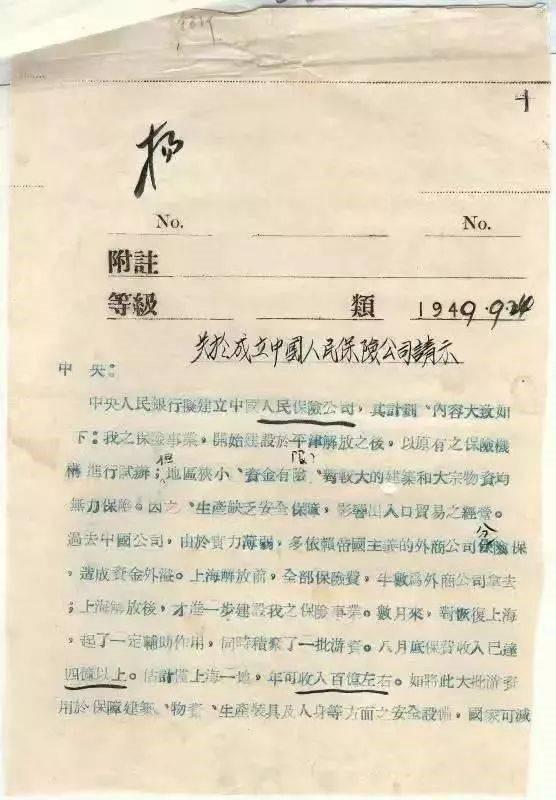 楊
No. No.
附註
等級 類 1949.9.24
关於成立中國人民保險公司請示
中央:
中央人民銀行擬建立中國人民保險公司,其計劃、內容大致如
下:我之保險事業,開始建設於平津解放之後,以原有之保險機
構進行試辦;但地區狹小、資金有限、對較大的建築和大宗物資均
無力保障。因之、生產缺乏安全保障,影響出入口貿易之經營。
過去中國公司,由於實力薄弱,多依賴帝國主義的外商公司分保
,造成資金外溢。上海解放前,全部保險費,半數爲外商公司拿去
;上海解放後,才進一步建設我之保險事業。數月來,對恢復上海
,起了一定輔助作用,同時積聚了一批游資。八月底保費收入已達
四億以上。估計僅上海一地,年可收入百億左右。如將此大批游資
用於保障建築、物資、生產裝具及人身等方面之安全設備,國家可減